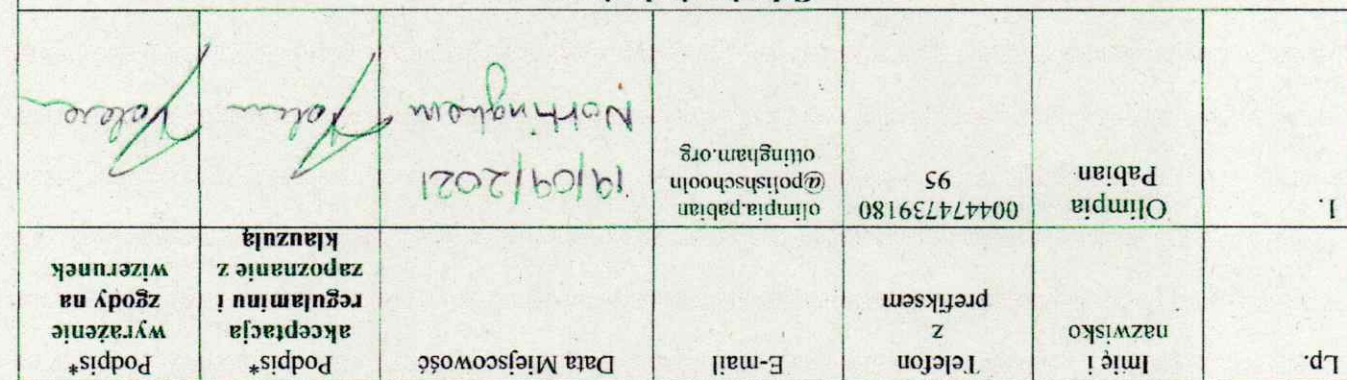 Lp.
Imię i
nazwisko
Telefon
z
prefiksem
E-mail
Data Miejscowość
Podpis*
akceptacja
regulaminu i
zapoznanie z
klauzulą
Podpis*
wyrażenie
zgody na
wizerunek
1.
Olimpia
Pabian
00447473​9180
95
olimpia.pabian
@polishschooln
ottingham.org
19/09/2021
Nottingham